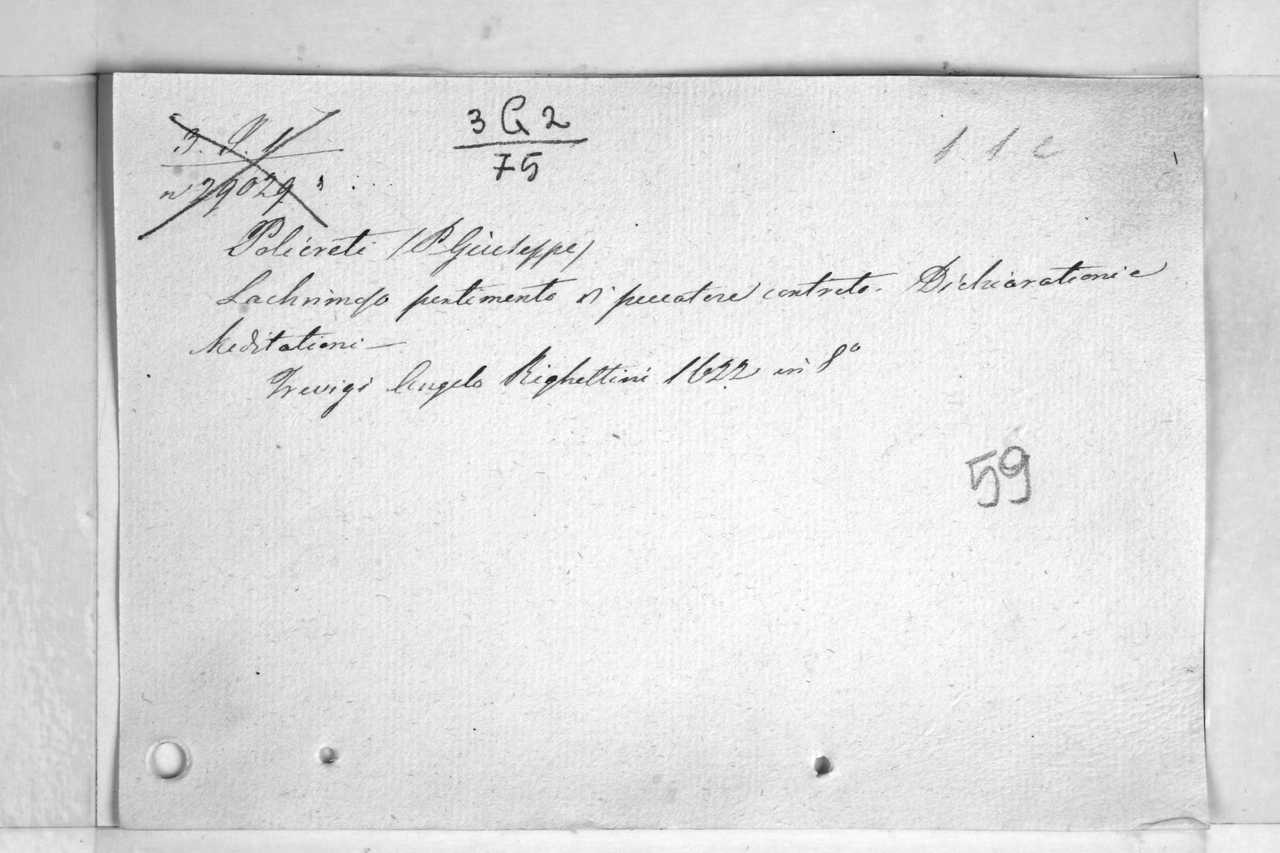 3 G 2
75
n° 29029
1 1 c
Policreti (P. Giuseppe)
Lachrimoso pentimento di peccatore contrito. Dichiarationi e
Meditationi —
Trevigi Angelo Righettini 1622 in 8°
59